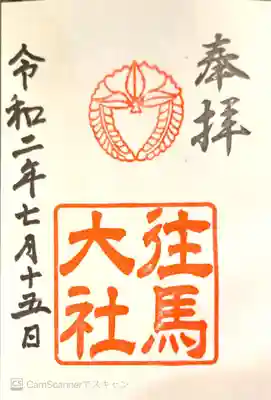 奉拝
往馬
大社
令和二年七月十五日
CS CamScannerでスキャン